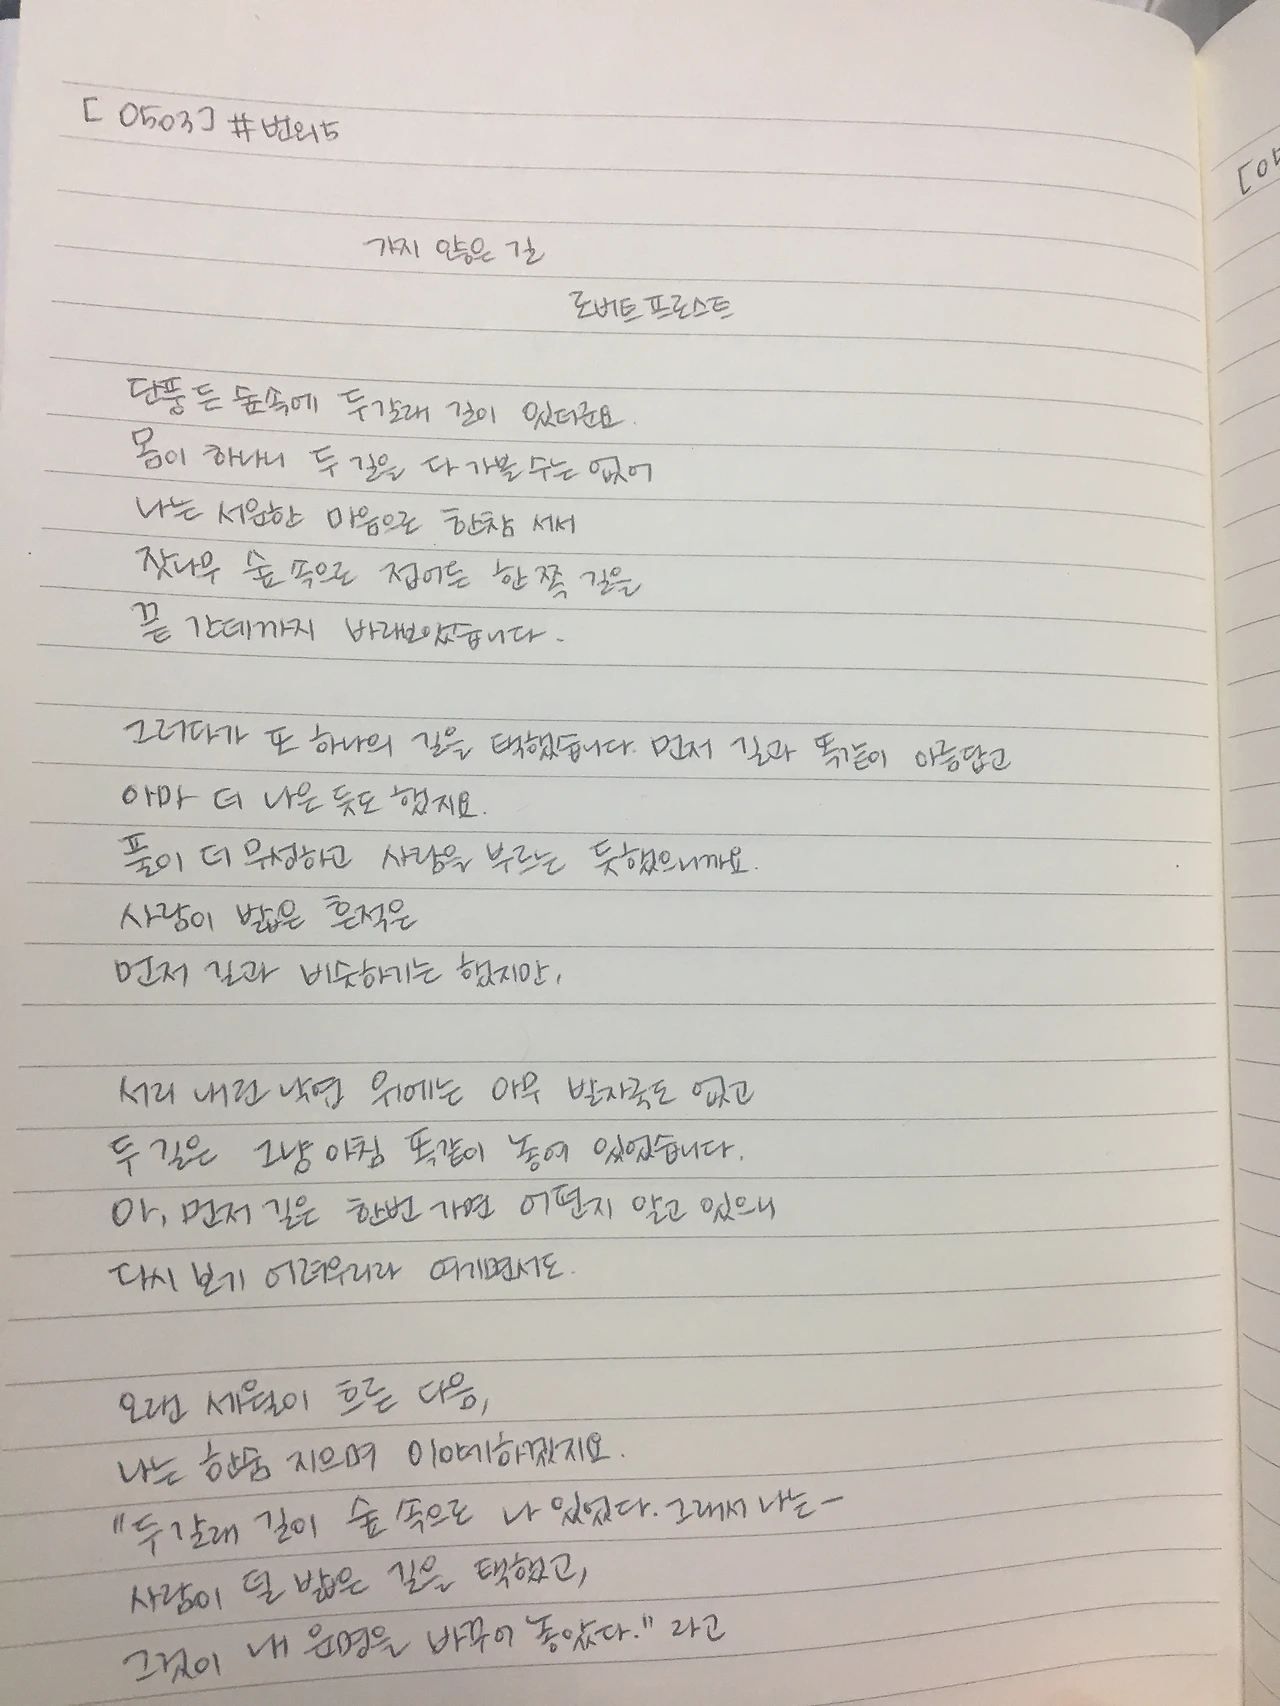 [0503] #번외5
가지 않은 길
로버트프로스트
단풍 든 숲속에 두갈래 길이 있더군요.
몸이 하나니 두 길을 다 가볼 수는 없어
나는 서운한 마음으로 한참 서서
잣나무 숲 속으로 접어든 한 쪽 길을
끝 간데까지 바라보았습니다.
그러다가 또 하나의 길을 택했습니다. 먼저 길과 똑같이 아름답고
아마 더 나은 듯도 했지요.
풀이 더 무성하고 사람을 부르는 듯했으니까요.
사람이 밟은 흔적은
먼저 길과 비슷하기는 했지만,
서리 내린 낙엽 위에는 아무 발자국도 없고
두 길은 그날 아침 똑같이 놓여 있었습니다.
아, 먼저 길은 한번 가면 어떤지 알고 있으니
다시 보기 어려우리라 여기면서도.
오랜 세월이 흐른 다음,
나는 한숨 지으며 이야기하겠지요.
"두 갈래 길이 숲 속으로 나 있었다. 그래서 나는-
사람이 덜 밟은 길을 택했고,
그것이 내 운명을 바꾸어 놓았다." 라고